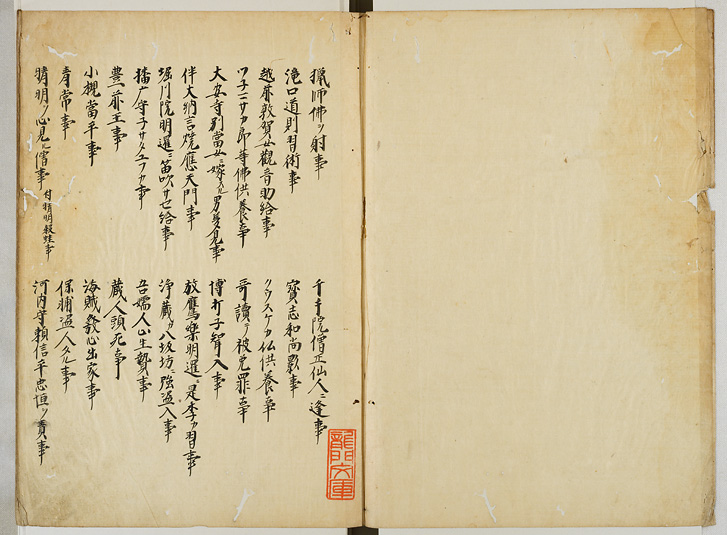 猟師佛ヲ射事
千手院僧正仙人ニ逢事
滝口道則習術事
寳志和尚影事
越前敦賀女觀音助給事
クウスケカ仏供養事
ツ子ニサカ郎等佛供養事
哥讀テ被免罪事
大安寺別當女ニ嫁スル男夢見事
博打子聟入事
伴大納言焼應天門事
放鷹樂明暹ニ是季カ習事
堀川院明暹ニ笛吹サセ給事
浄蔵カ八坂坊ニ強盗入事
播广守子サタユフカ事
吾嬬人止生贄事
豊前王事
蔵人頓死事
小槻當平事
海賊發心出家事
青常事
保輔盗人タル事
晴明ヲ心見ル僧事 付晴明殺蛙事
河内守頼信平忠恒ヲ責事
龍門文庫